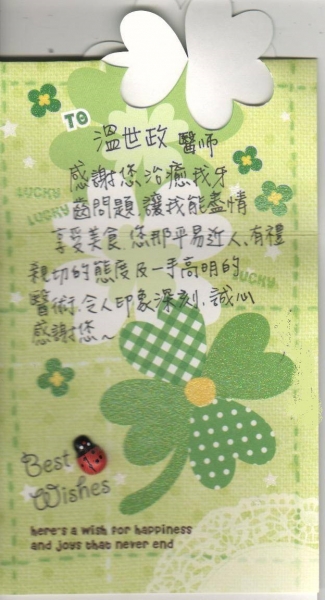 TO
溫世政 醫師
感謝您治癒我牙
齒問題,讓我能盡情
享受美食,您那平易近人、有禮
親切的態度及一手高明的
醫術,令人印象深刻,誠心
感謝您~
LUCKY
LUCKY
LUCKY
Best
Wishes
here's a wish for happiness
and joys that never end